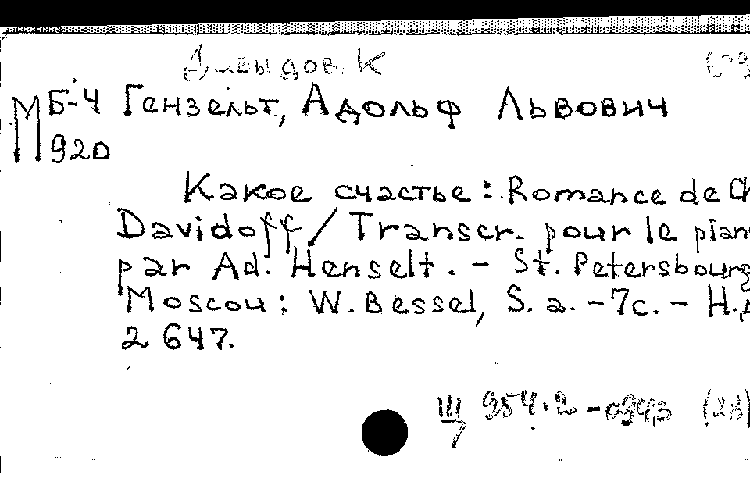 Давыдов. К
М Б-4 Гензельт, Адольф Львович
920
Какое счастье: Romance de Ch
Davidoff / Transcr. pour le pian
par Ad. Henselt. - St. Petersbourg
Moscou: W. Bessel, S. a. - 7c. - Н.д
2 647.
Щ 954.2 -
7